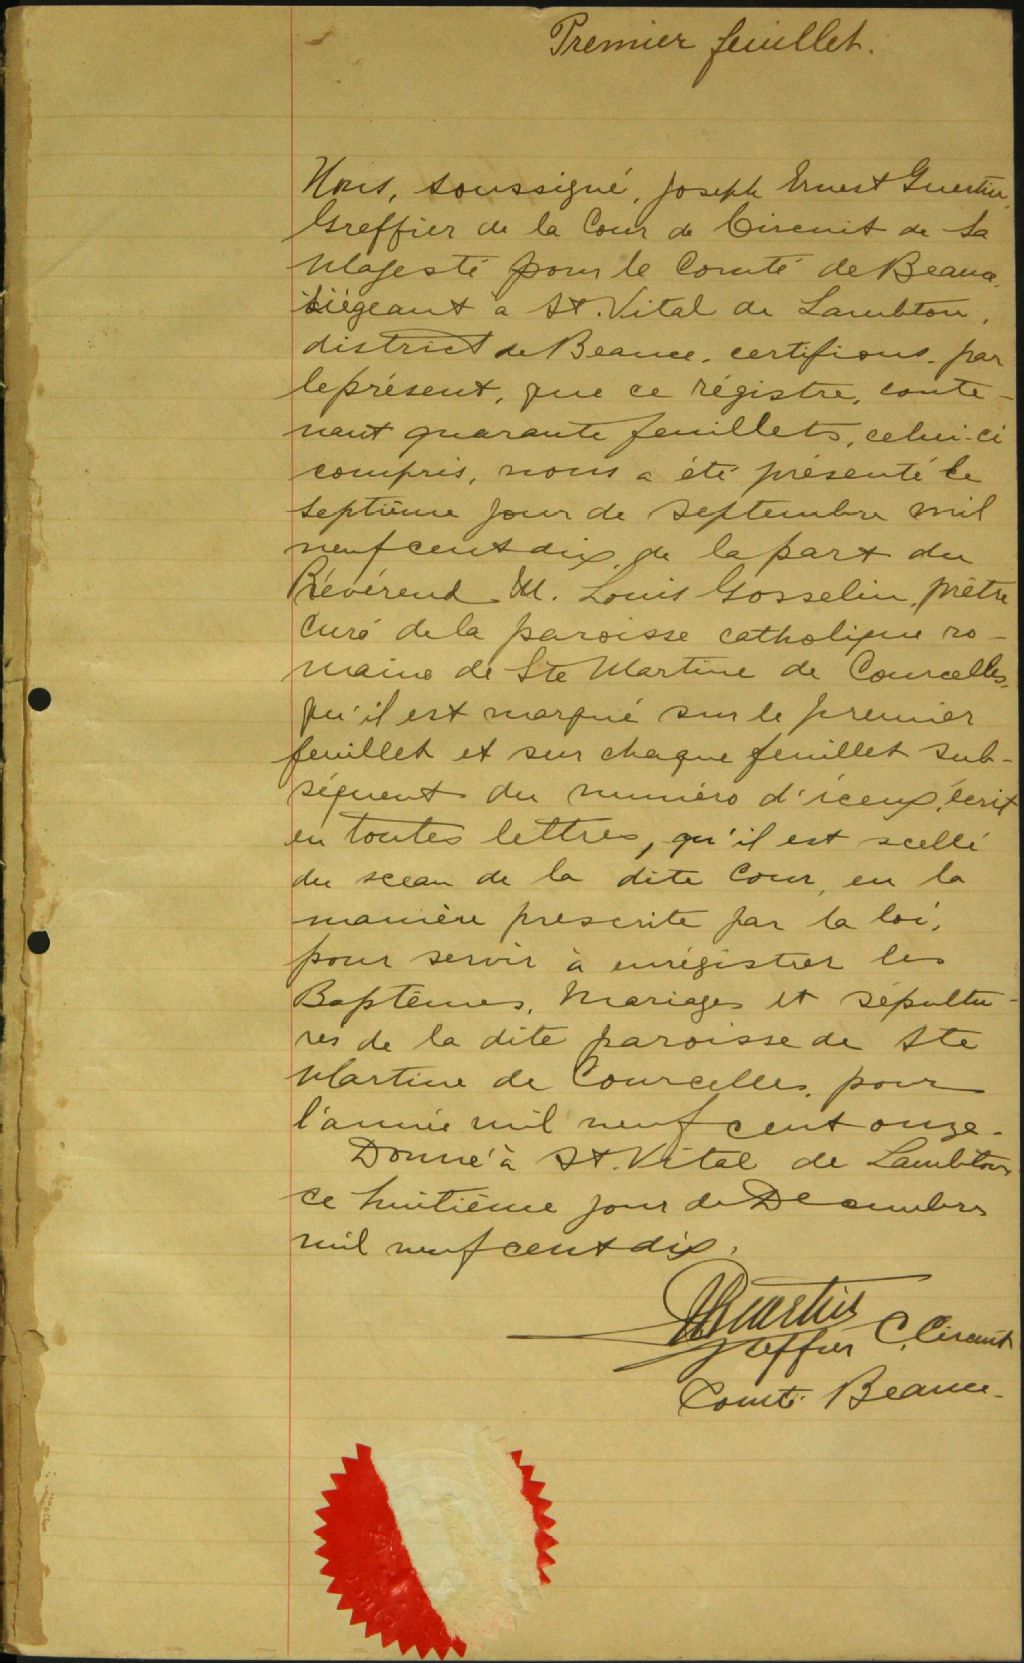 Premier feuillet.
Nous, soussigné, Joseph Ernest Guertin,
Greffier de la Cour de Circuit de Sa
Majesté pour le Comté de Beauce,
siégeant à St. Vital de Lambton,
district de Beauce, certifions, par
le présent, que ce régistre, conte-
nant quarante feuillets, celui-ci
compris, nous a été présenté le
septième jour de septembre mil
neuf cent dix, de la part du
Révérend M. Louis Gosselin, prêtre
curé de la paroisse catholique ro-
maine de Ste Martine de Courcelles,
qu'il est marqué sur le premier
feuillet et sur chaque feuillet sub-
séquent du numéro d'iceux, écrit
en toutes lettres, qu'il est scellé
du sceau de la dite Cour, en la
manière prescrite par la loi,
pour servir à enrégistrer les
Baptêmes, Mariages et sépultu-
res de la dite paroisse de Ste
Martine de Courcelles, pour
l'année mil neuf cent onze.
Donné à St. Vital de Lambton
ce huitième jour de Décembre
mil neuf cent dix.
Guertin
Greffier C. Circuit
Comté Beauce.